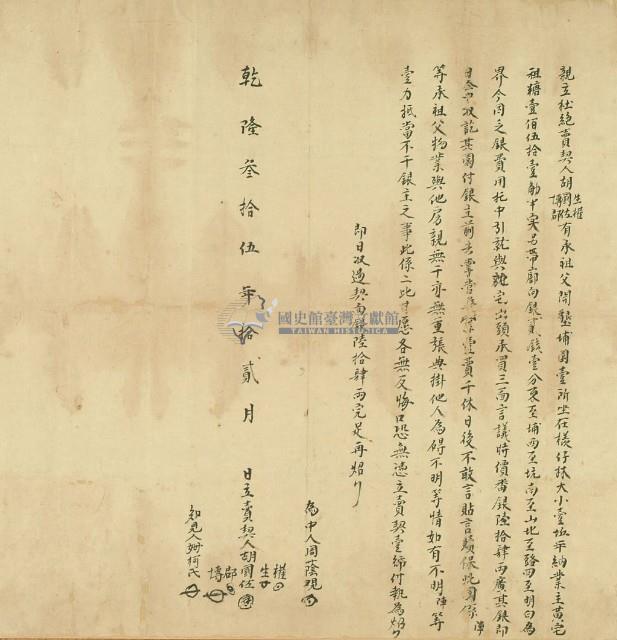 親立杜絕賣契人胡國佐生權博郡有承祖父開墾埔園壹所坐在檨仔林大小壹坵年納業主黃宅
租糖壹佰伍拾壹觔半又另帶廍向銀貳錢壹分東至埔西至坑南至山北至路四至明白為
界今因乏銀費用托中引就與 宅出頭承買三面言議時價番銀陸拾肆兩廣其銀即
日仝中收訖其園付銀主前去掌管 業壹賣千休日後不敢言貼言贖保此園係
等承祖父物業與他房親無干亦無重張典掛他人為碍不明等情如有不明 等
壹力抵當不干銀主之事此係二比甘愿各無反悔口恐無憑立賣契壹紙付執為炤
即日收過契內銀陸拾肆兩完足再炤
為中人周蔭觀
乾隆叁拾伍年拾貳月 日立賣契人胡國佐生權博郡
知見人 柯氏
國史館臺灣文獻館
TAIWAN HISTORICA